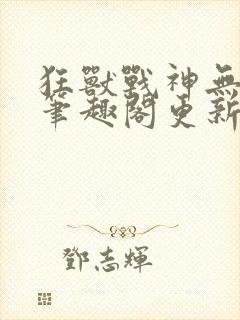 狂獸戰神無
筆趣閣更新
鄧志輝